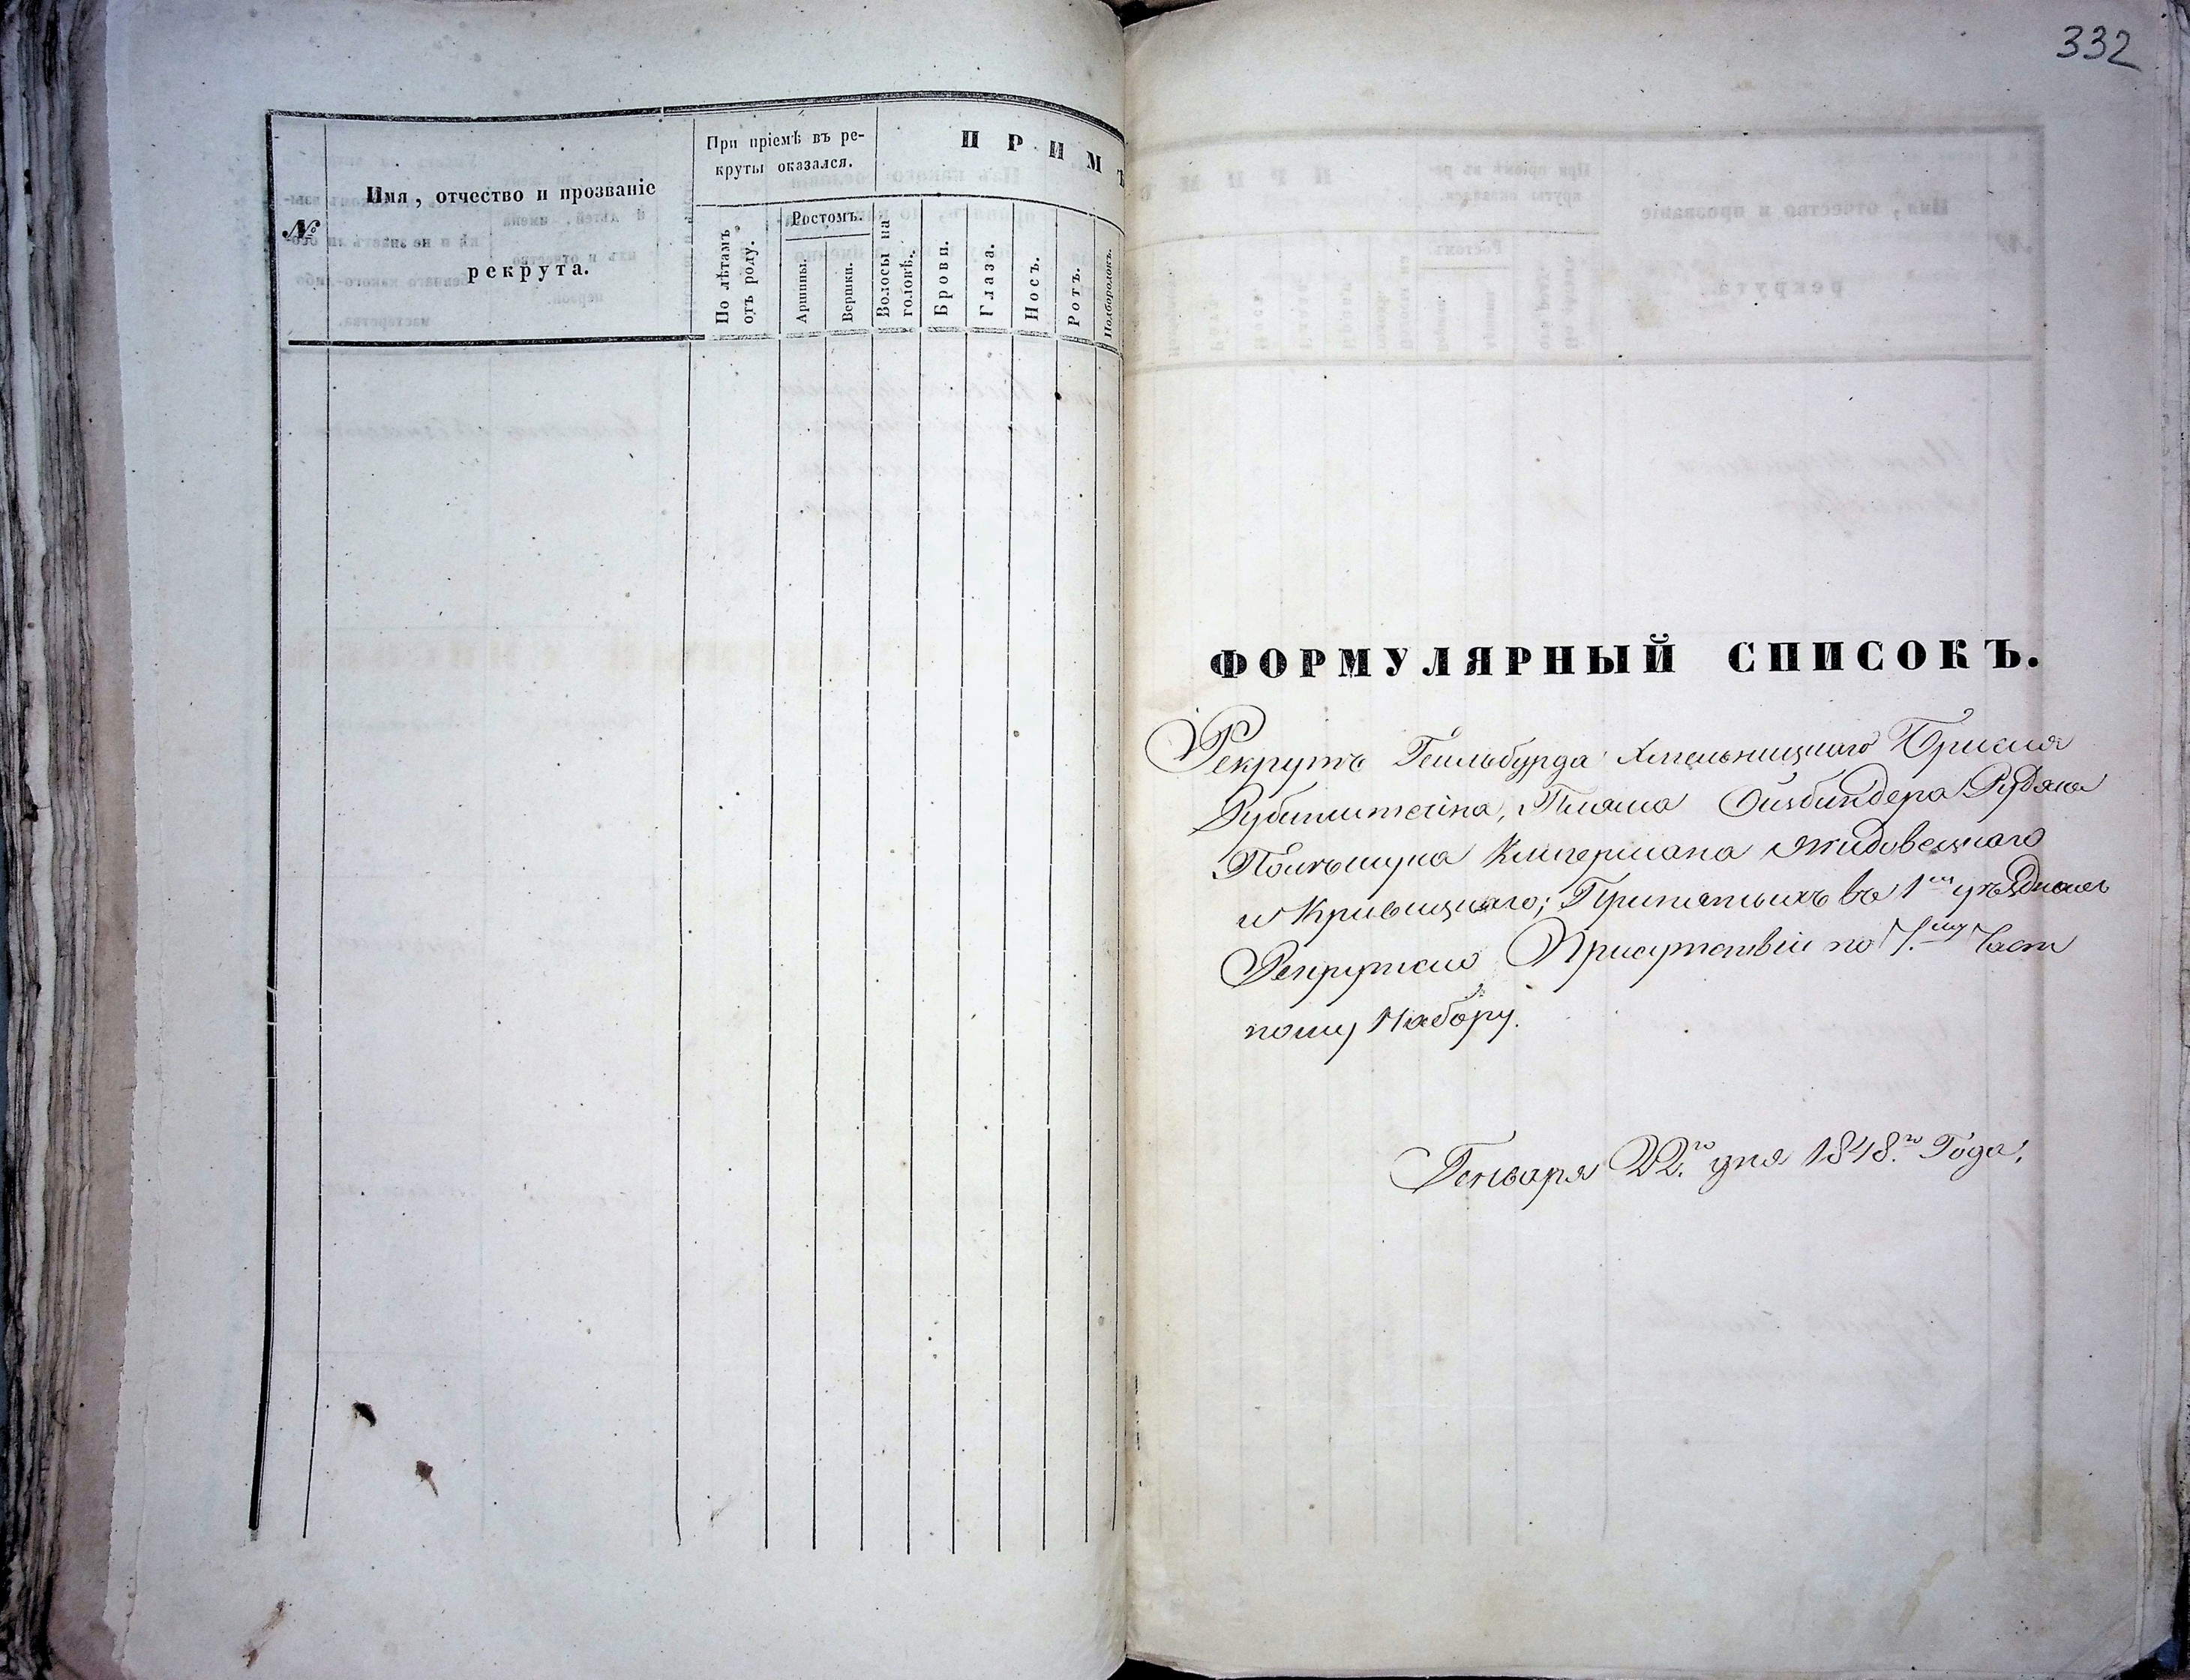 №
Имя, отчество и прозваніе
рекрута.
При пріемѣ въ ре-
круты оказался.
По лѣтамъ
отъ роду.
Ростомъ.
Аршины.
Вершки.
П Р И М Ѣ
Волосы на
головѣ.
Брови.
Глаза.
Носъ.
Ротъ.
Подбородокъ.
332
ФОРМУЛЯРНЫЙ СПИСОКЪ.
Рекрутъ Гейльбурда Хмельницкаго
Рубинштейна, Ойзбиндера Рудяка
Клигермана Жидовецкаго
и Кривицкаго; Принятыхъ въ 1м уѣздномъ
Рекрутско Присутствіи по 7.му Част
ному Набору.
Генваря 22.го дня 1848.го Года.